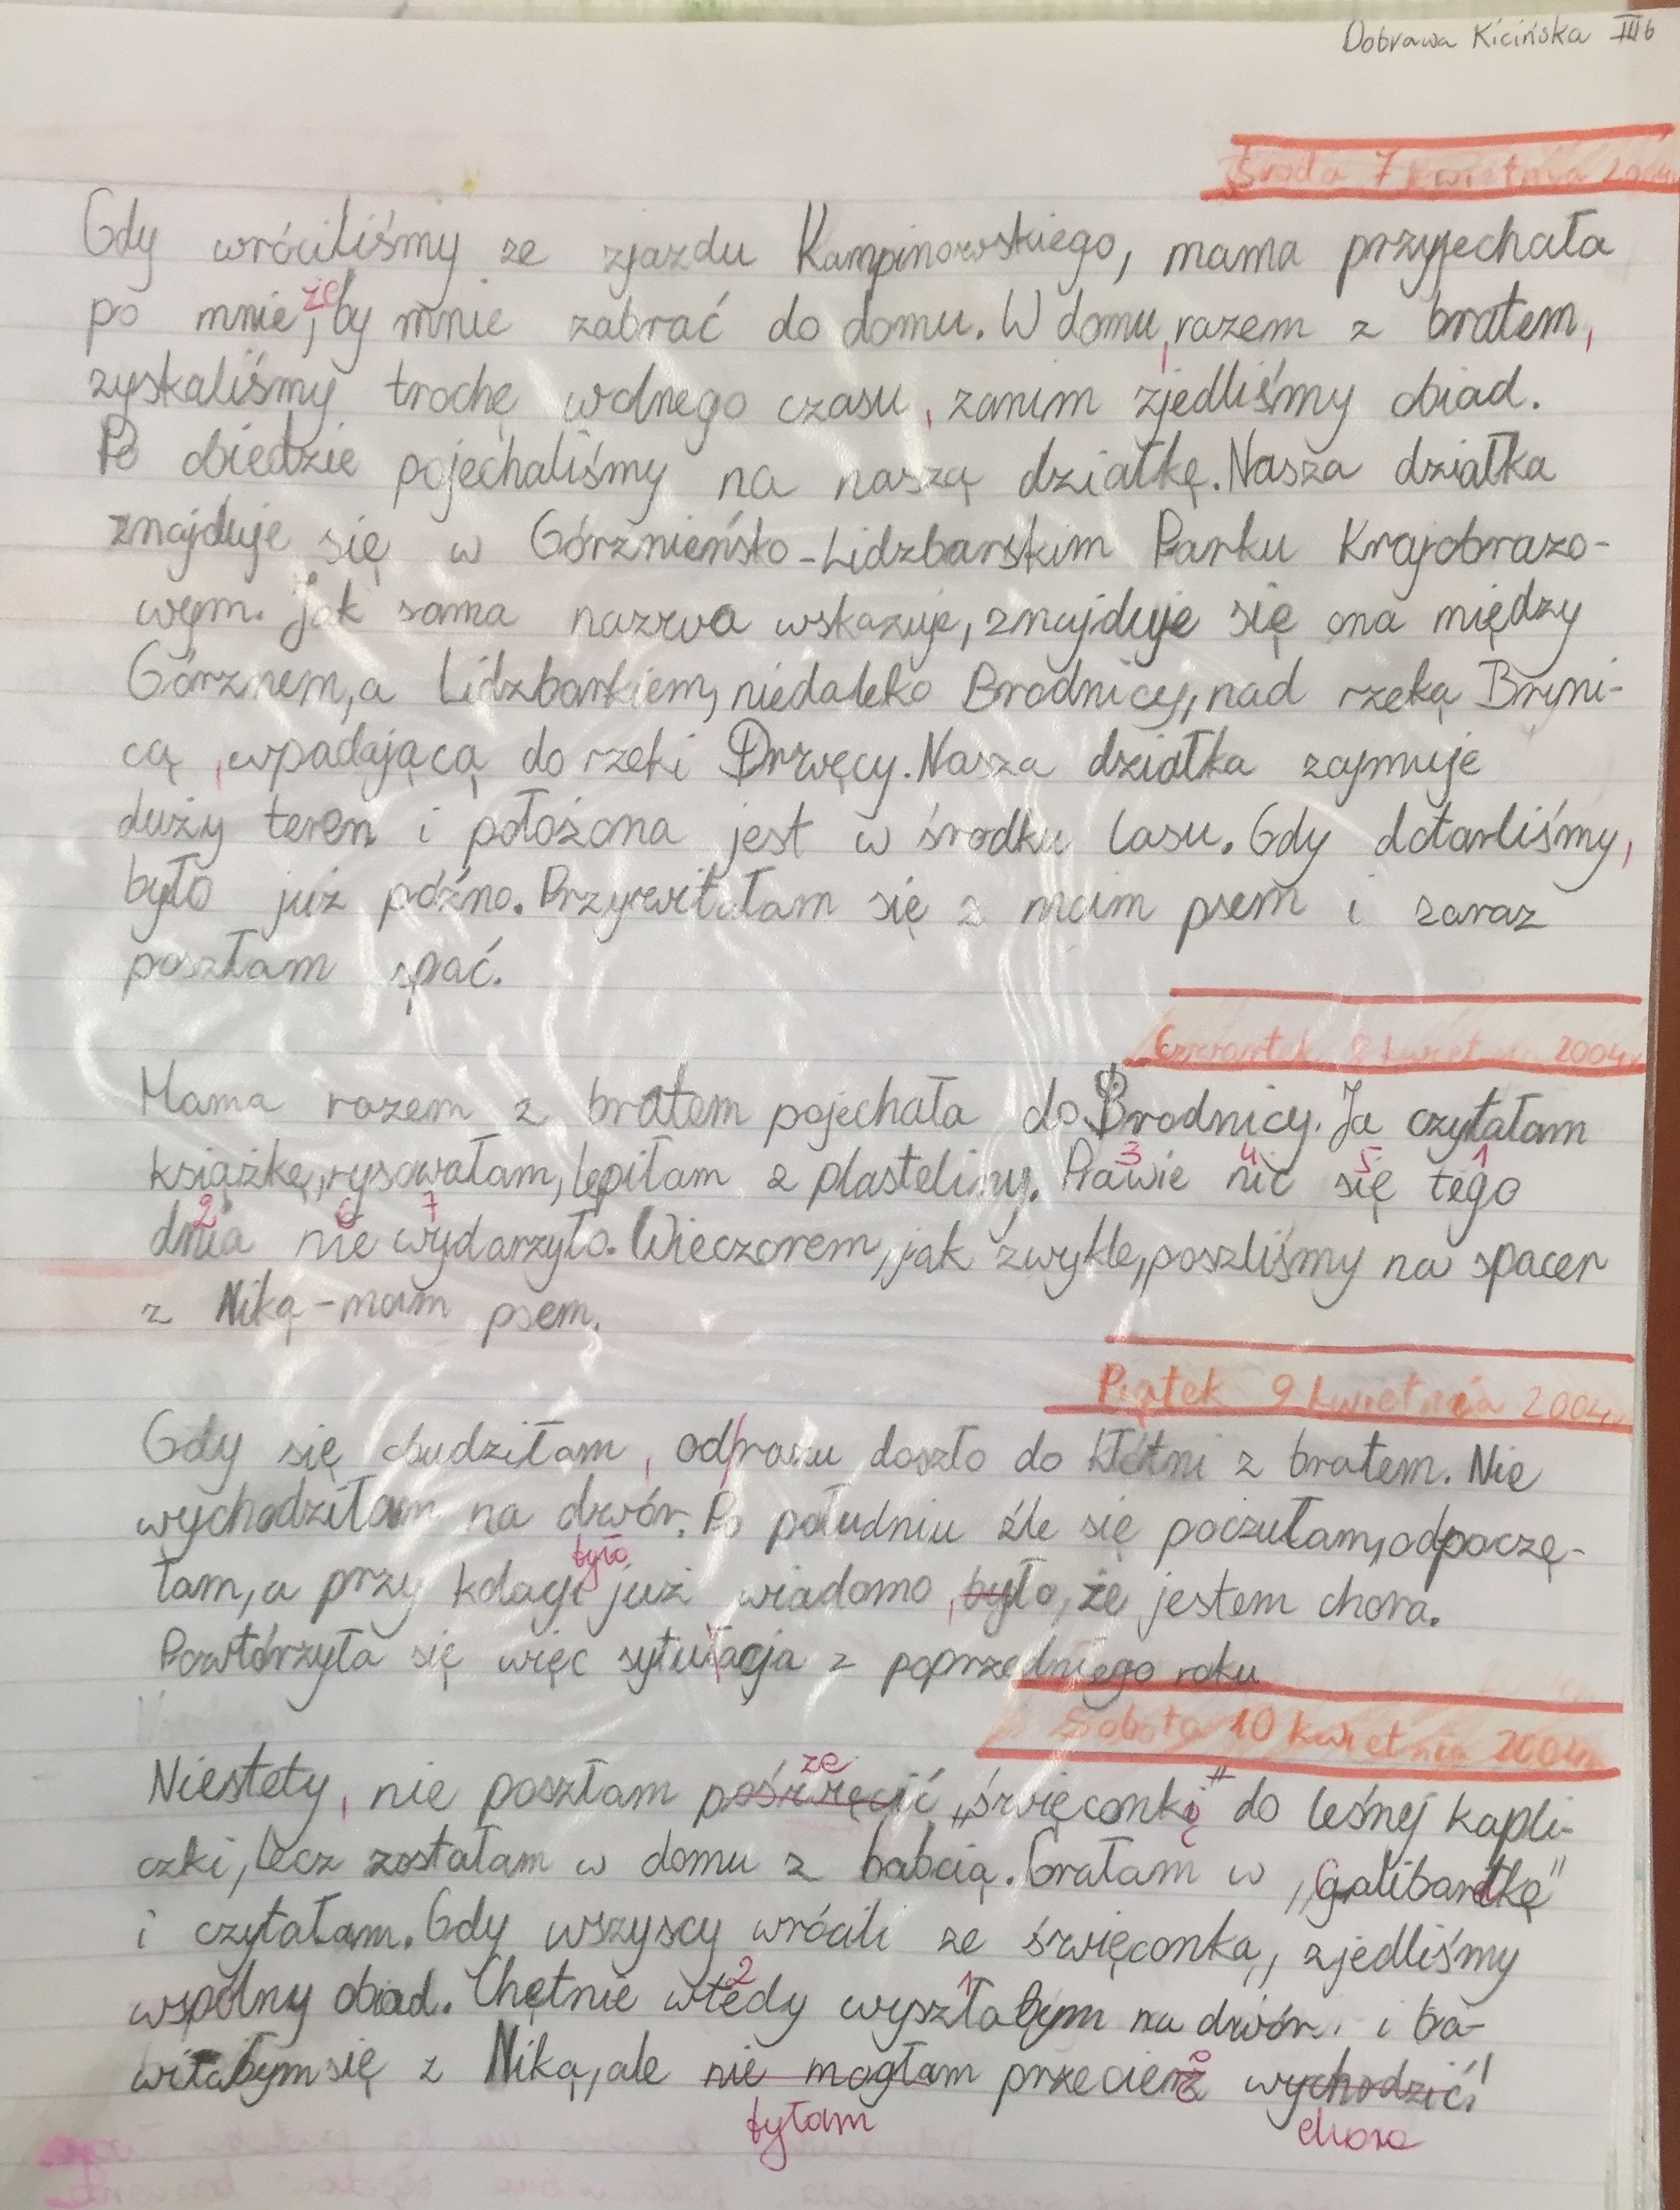 Dobrawa Kicińska IIIb
Środa 7 kwietnia 2004r
Gdy wróciliśmy ze zjazdu Kampinowskiego, mama przyjechała
że
po mnie, by mnie zabrać do domu. W domu, razem z bratem,
zyskaliśmy trochę wolnego czasu, zanim zjedliśmy obiad.
Po obiedzie pojechaliśmy na naszą działkę. Nasza działka
znajduje się w Górznieńsko-Lidzbarskim Parku Krajobrazo-
wym. Jak sama nazwa wskazuje, znajduje się ona między
Górznem, a Lidzbarkiem, niedaleko Brodnicy, nad rzeką Bryni-
cą, wpadającą do rzeki Drwęcy. Nasza działka zajmuje
duży teren i położona jest w środku lasu. Gdy dotarliśmy,
było już późno. Przywitałam się z moim psem i zaraz
poszłam spać.
Czwartek 8 kwietnia 2004r
Mama razem z bratem pojechała do Brodnicy. Ja czytałam
3 4 5 1
książkę, rysowałam, lepiłam z plasteliny. Prawie nic się tego
2 6 7
dnia nie wydarzyło. Wieczorem, jak zwykle, poszliśmy na spacer
z Niką - moim psem.
Piątek 9 kwietnia 2004r
Gdy się obudziłam, od razu doszło do kłótni z bratem. Nie
wychodziłam na dwór. Po południu źle się poczułam, odpoczę-
było
łam, a przy kolacji już wiadomo, było, że jestem chora.
Powtórzyła się więc sytułacja z poprzedniego roku
Sobota 10 kwietnia 2004r
ze
Niestety, nie poszłam poświęcić „święconki" do leśnej kapli-
czki, lecz zostałam w domu z babcią. Grałam w „Galibardkę"
i czytałam. Gdy wszyscy wrócili ze święconką, zjedliśmy
2 1
wspólny obiad. Chętnie wtedy wyszłabym na dwór i ba-
wiłabym się z Niką, ale nie mogłam przecież wychodzić!
byłam chora